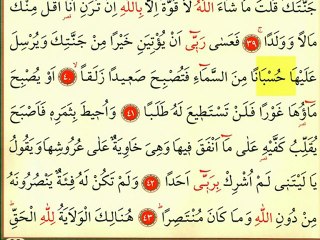 جَنَّتَكَ قُلْتَ مَا شَاءَ اللّٰهُ لَا قُوَّةَ اِلَّا بِاللّٰهِ اِنْ تَرَنِ اَنَا اَقَلَّ مِنْكَ
مَالًا وَوَلَدًا ﴿٣٩﴾ فَعَسٰى رَبّٖى اَنْ يُؤْتِيَنِ خَيْرًا مِنْ جَنَّتِكَ وَيُرْسِلَ
عَلَيْهَا حُسْبَانًا مِنَ السَّمَاءِ فَتُصْبِحَ صَعٖيدًا زَلَقًا ﴿٤٠﴾ اَوْ يُصْبِحَ
مَاؤُهَا غَوْرًا فَلَنْ تَسْتَطٖيعَ لَهُ طَلَبًا ﴿٤١﴾ وَاُحٖيطَ بِثَمَرِهٖ فَاَصْبَحَ
يُقَلِّبُ كَفَّيْهِ عَلٰى مَا اَنْفَقَ فٖيهَا وَهِىَ خَاوِيَةٌ عَلٰى عُرُوشِهَا وَيَقُولُ
يَا لَيْتَنٖى لَمْ اُشْرِكْ بِرَبّٖى اَحَدًا ﴿٤٢﴾ وَلَمْ تَكُنْ لَهُ فِئَةٌ يَنْصُرُونَهُ
مِنْ دُونِ اللّٰهِ وَمَا كَانَ مُنْتَصِرًا ﴿٤٣﴾ هُنَالِكَ الْوَلَايَةُ لِلّٰهِ الْحَقِّ